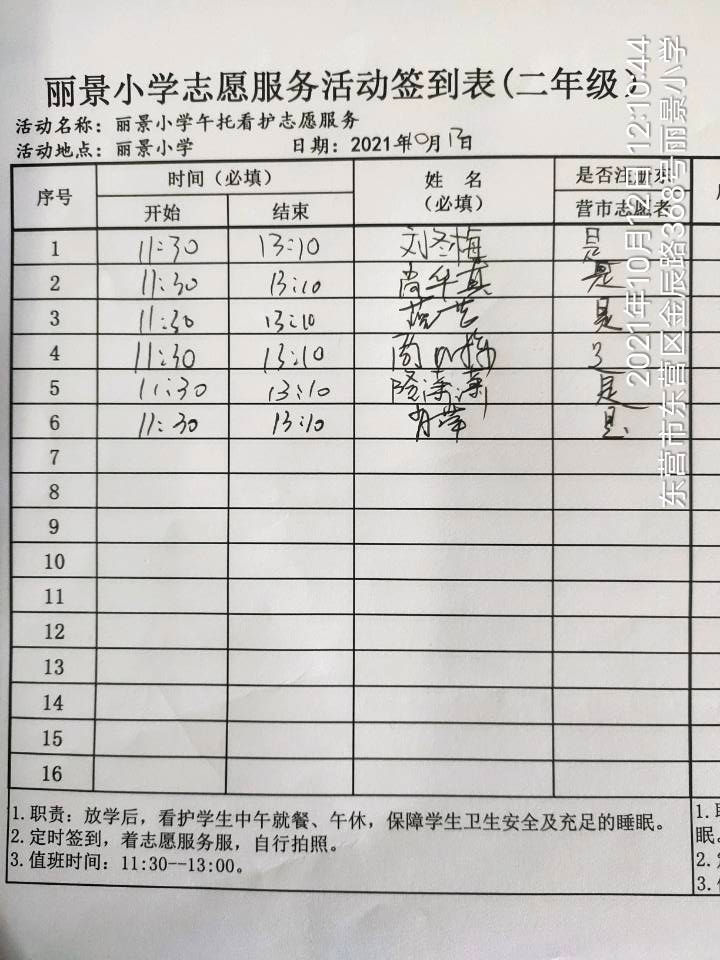 丽景小学志愿服务活动签到表(二年级)
活动名称：丽景小学午托看护志愿服务
活动地点：丽景小学 日期：2021年10月13日
序号 时间（必填） 姓名（必填） 是否注册东营市志愿者
开始 结束
1 11:30 13:10 刘冬梅 是
2 11:30 13:10 尚华真 是
3 11:30 13:10 是
4 11:30 13:10
5 11:30 13:10 隆潇潇 是
6 11:30 13:10 是
7
8
9
10
11
12
13
14
15
16
1.职责：放学后，看护学生中午就餐、午休，保障学生卫生安全及充足的睡眠。
2.定时签到，着志愿服务服，自行拍照。
3.值班时间：11:30--13:00。
1.
眠。
2.
3.
2021年10月12日 12:10:44
东营市东营区金辰路368号丽景小学